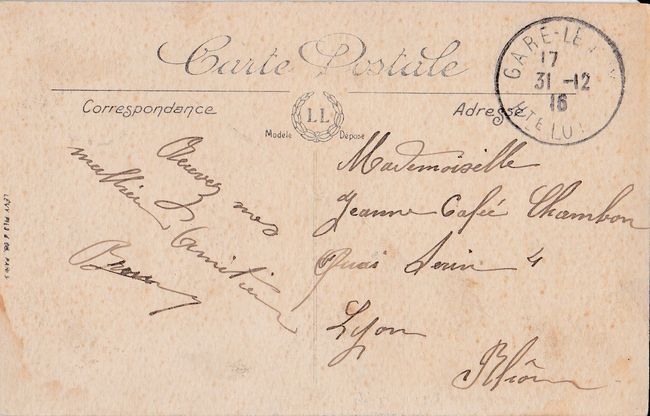 Carte Postale
Correspondance
Adresse
LL
Modèle Déposé
GARE-LE
17
31-12
16
Recevez mes
meilleures
Amitiés
Mademoiselle
Jeanne Café Chambon
Quai Serin 4
Lyon
Rhône
LÉVY FILS & Cie. PARIS